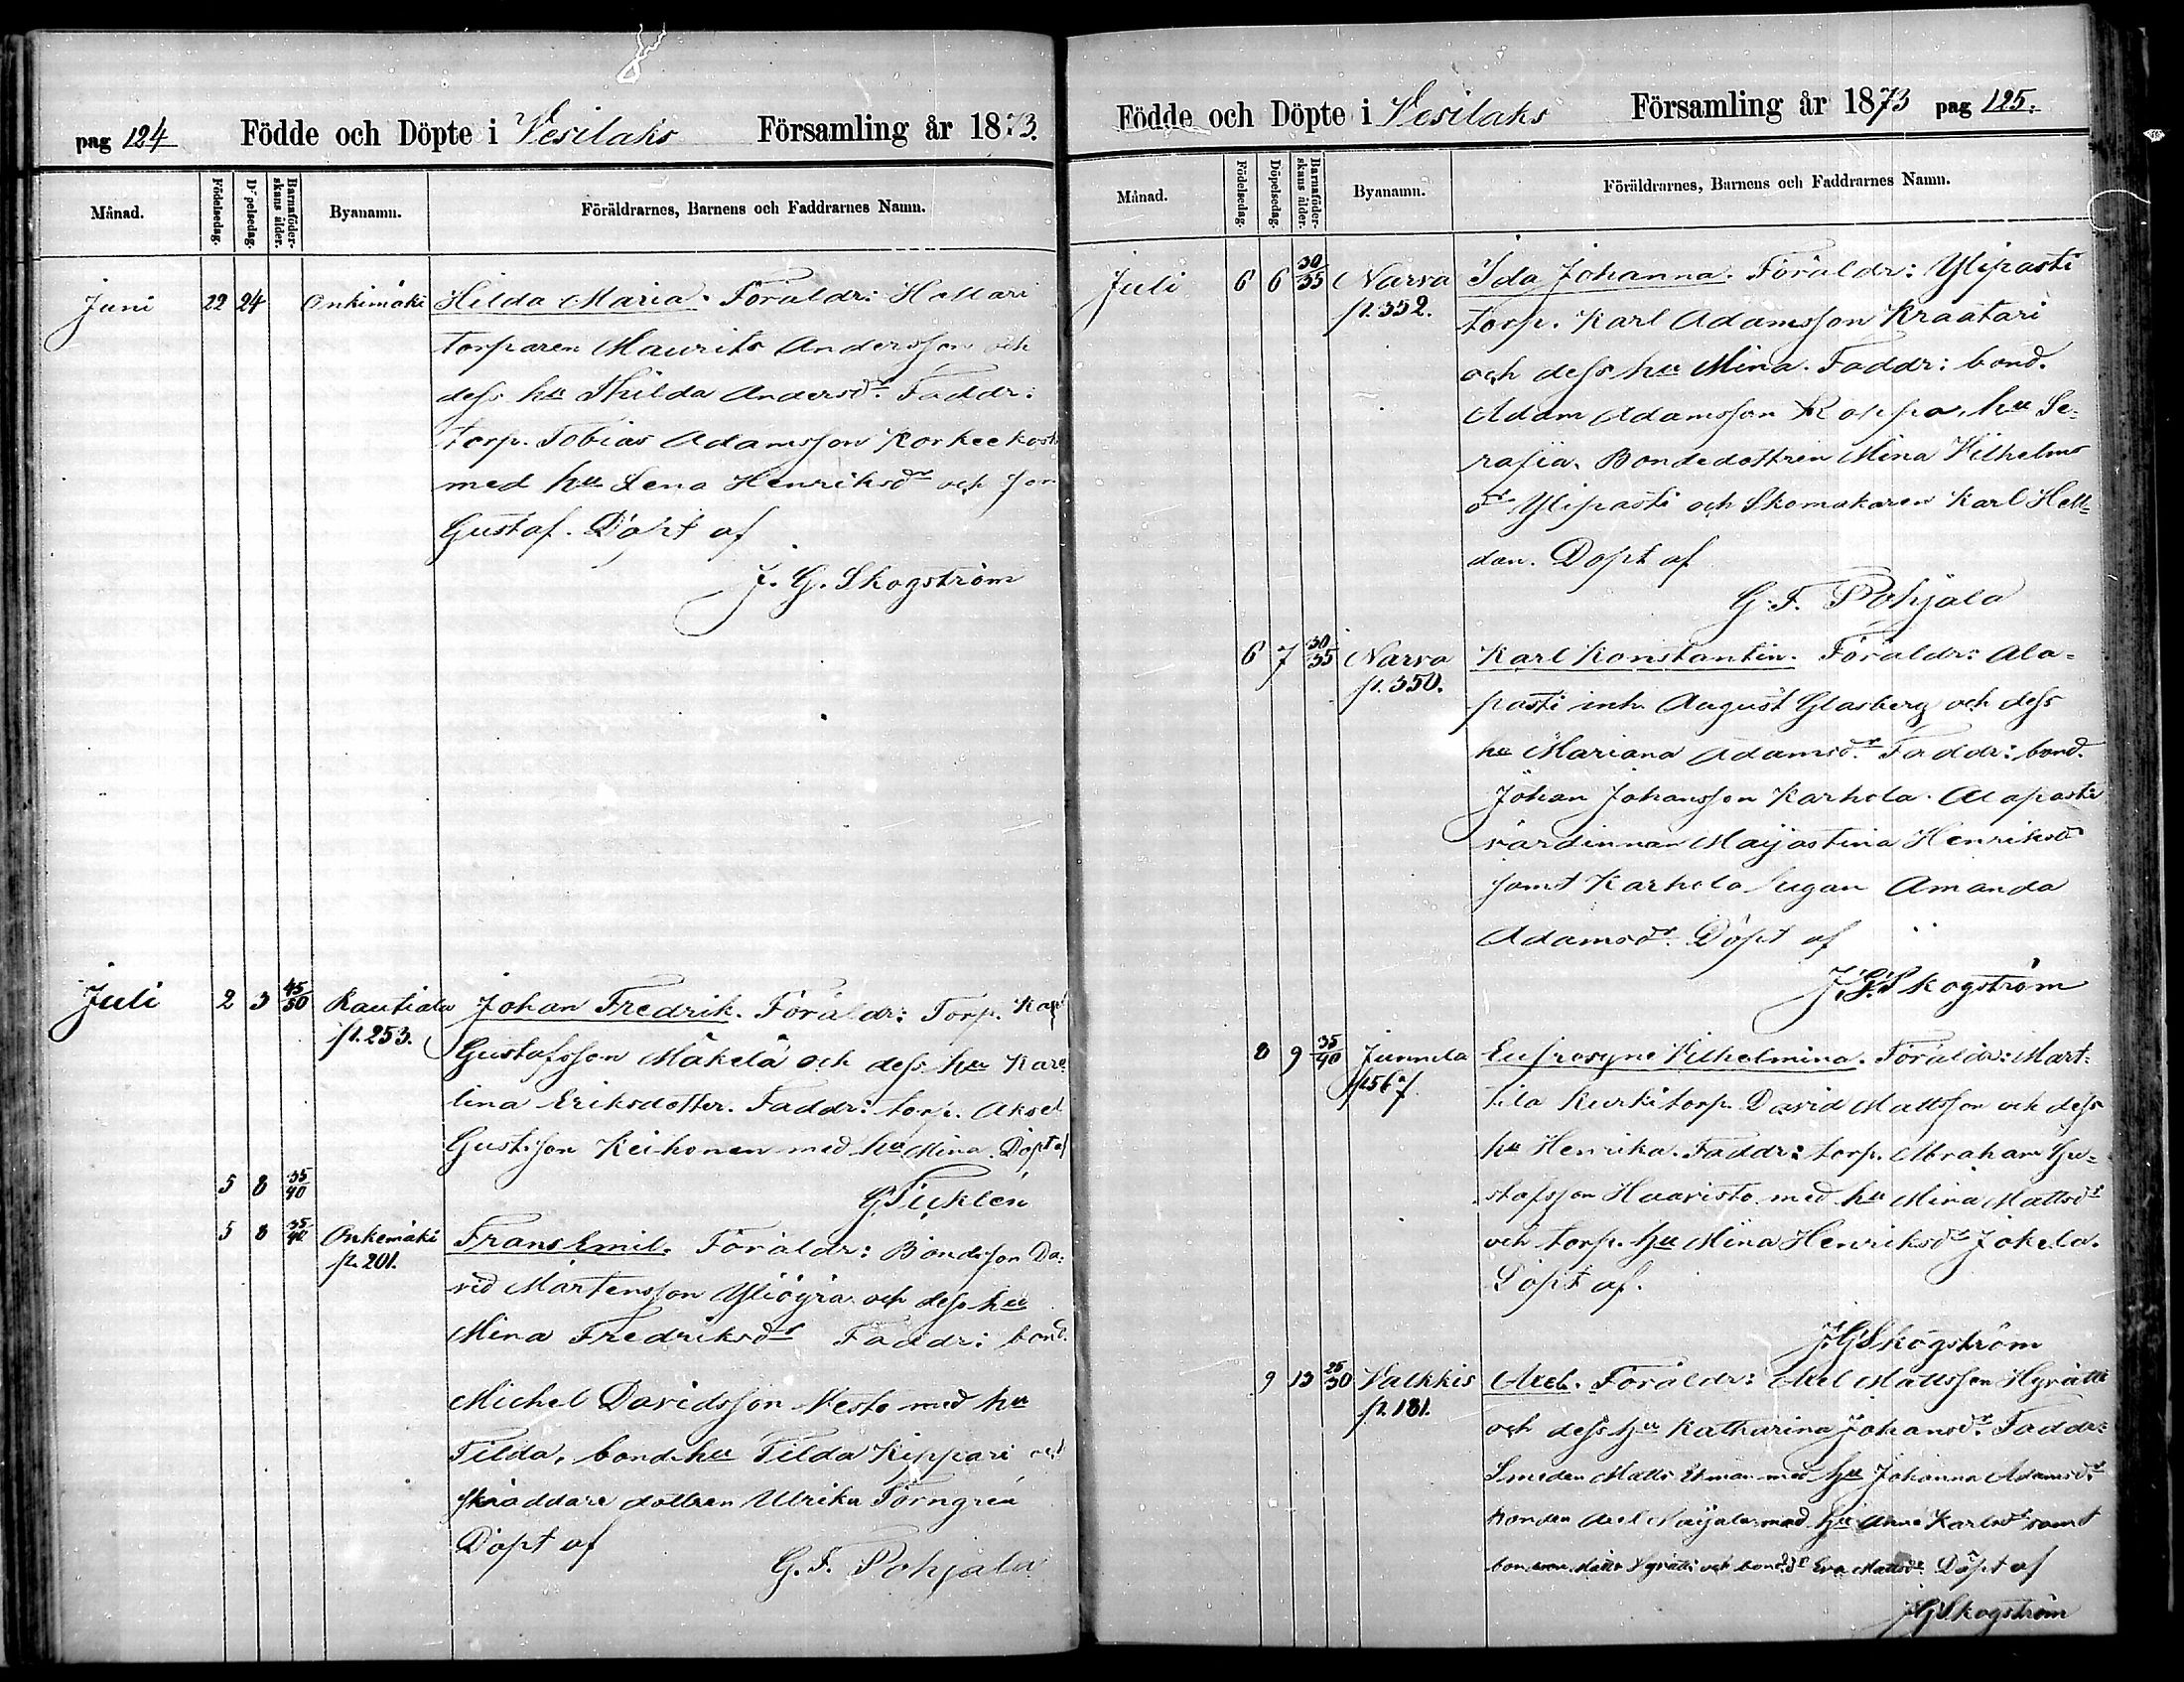 pag 124 Födde och Döpte i Vesilaks Församling år 1873.
Månad. Födelsedag. Döpelsedag. Barnaföderskans ålder. Byanamn. Föräldrarnes, Barnens och Faddrarnes Namn.
Juni 22 24 Onkimäki Hilda Maria. Föräldr: Hollari
torparen Maurits Andersson och
dess hu Thilda Andersdr. Faddr:
torp. Tobias Adamsson Korkeekoski
med hu Lena Henriksdr och son
Gustaf. Döpt af
J. G. Skogström
Juli 2 3 45/50 Rautiala Johan Fredrik. Föräldr: Torp.
p. 253. Gustafsson Mäkelä och dess hu Karo
lina Eriksdotter. Faddr: torp. Aksel
Gustsson Keihonen med hu Mina. Döpt af
5 8 35/40
5 8 35/40 Onkemäki Frans Emil. Föräldr: Bondsson Da-
p. 201. vid Mårtensson Yliöyrä och dess hu
Mina Fredriksdr Faddr: bond.
Michel Davidsson Vesto med hu
Tilda, bondehu Tilda Kippari och
skräddare dottren Ulrika Törngren
Döpt af
G. F. Pohjala
Födde och Döpte i Vesilaks Församling år 1873 pag 125.
Månad. Födelsedag. Döpelsedag. Barnaföderskans ålder. Byanamn. Föräldrarnes, Barnens och Faddrarnes Namn.
Juli 6 6 30/35 Narva Ida Johanna. Föräldr: Ylipasti
p. 352. torp. Karl Adamsson Kraatari
och dess hu Mina. Faddr: bond.
Adam Adamsson Roppo, hu Se-
rafia. Bondedottren Mina Vilhelms
dr Ylipasti och Skomakaren Karl Hell-
dan. Döpt af
G. F. Pohjala
6 7 30/35 Narva Karl Konstantin. Föräldr: Ala-
p. 350. pasti inh. August Glasberg och dess
hu Mariana Adamsdr. Faddr: bond.
Johan Johansson Karhola. Alapasti
värdinnan Maijastina Henriksdr
samt Karhola pigan Amanda
Adamsdr. Döpt af
J. G. Skogström
8 9 35/40 Junnila Eufrosyne Vilhelmina. Föräldr: Mart-
p. 567. tila Kurki torp. David Mattsson och dess
hu Henrika. Faddr: torp. Abraham Gu-
stafsson Haavisto med hu Mina Mattsdr
och torp. hu Mina Henriksdr Jokela.
Döpt af.
J. G. Skogström
9 13 25/30 Valkkis Axel. Föräldr: Axel Mattsson Hyrätti
p. 181. och dess hu Katharina Johansdr. Faddr:
Smeden Matts Ekman med hu Johanna Adamsdr.
bonden Axel Naijala med hu Anna Karlsdr samt
Matts Hyrätti och bond. dr Eva Mattsdr. Döpt af
J G Skogström